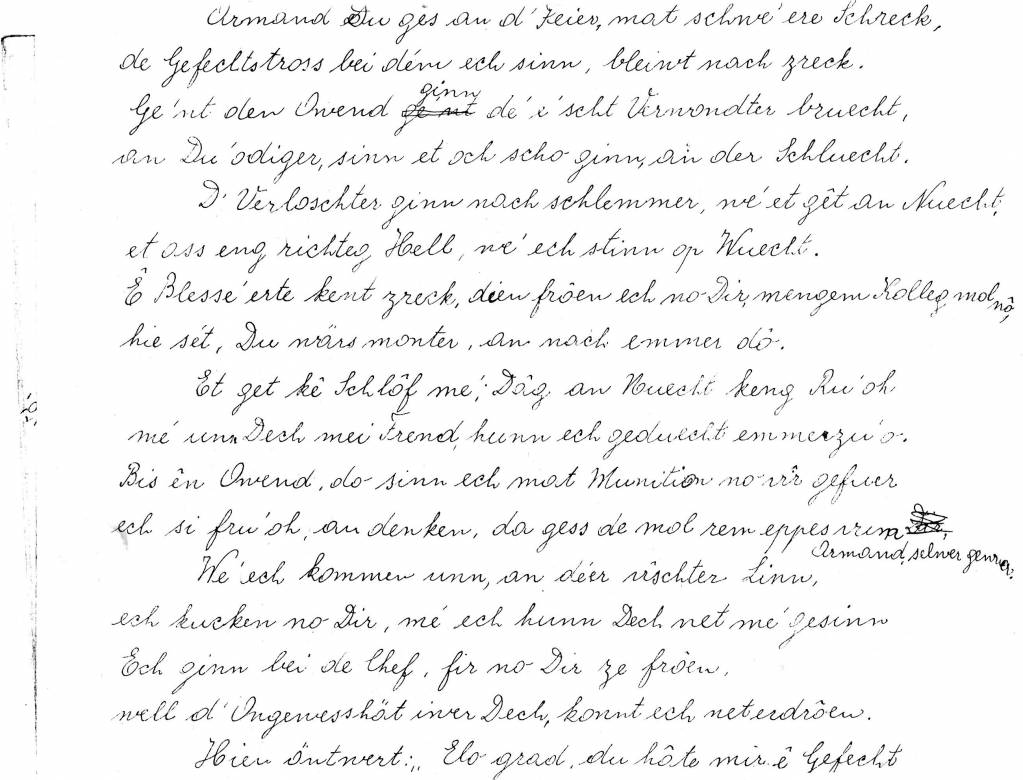 Armand Du ges an d' Feier, mat schwe' ere Schreck,
de Gefechtstross bei dém ech sinn, bleiwt nach zreck.
ginn
Ge'nt den Owend ge'nt dé' é' scht Verwondter bruecht,
an Du'odiger, sinn et och scho ginn, an der Schluecht.
D' Verloschter ginn nach schlemmer, wé' et gêt an Nuecht,
et ass eng richteg Hell, we' ech stinn op Wuecht.
Ê Blessé'erte kent zreck, dien frôen ech no Dir, mengem Kolleg mol nô,
hie sét, Du wärs monter, an nach emmer dô.
Et get kê Schlôf mé', Dâg an Nuecht keng Ru'oh
mé unn Dech mei Frend, hunn ech geduecht emmerzu'o.
Bis ên Owend, do sinn ech mat Munition no vîr gefuer
ech si fru'oh, an denken, da gess de mol rem eppes vum
Armand, selwer gewuer.
We' ech kommen unn, an déer vîschter Linn,
ech kucken no Dir, mé ech hunn Dech net me' gesinn
Ech ginn bei de Chef, fir no Dir ze frôen,
well d' Ongewesshät iwer Dech, konnt ech net erdrôen.
Hien äntwert: „ Elo grad, du hâte mir ê Gefecht